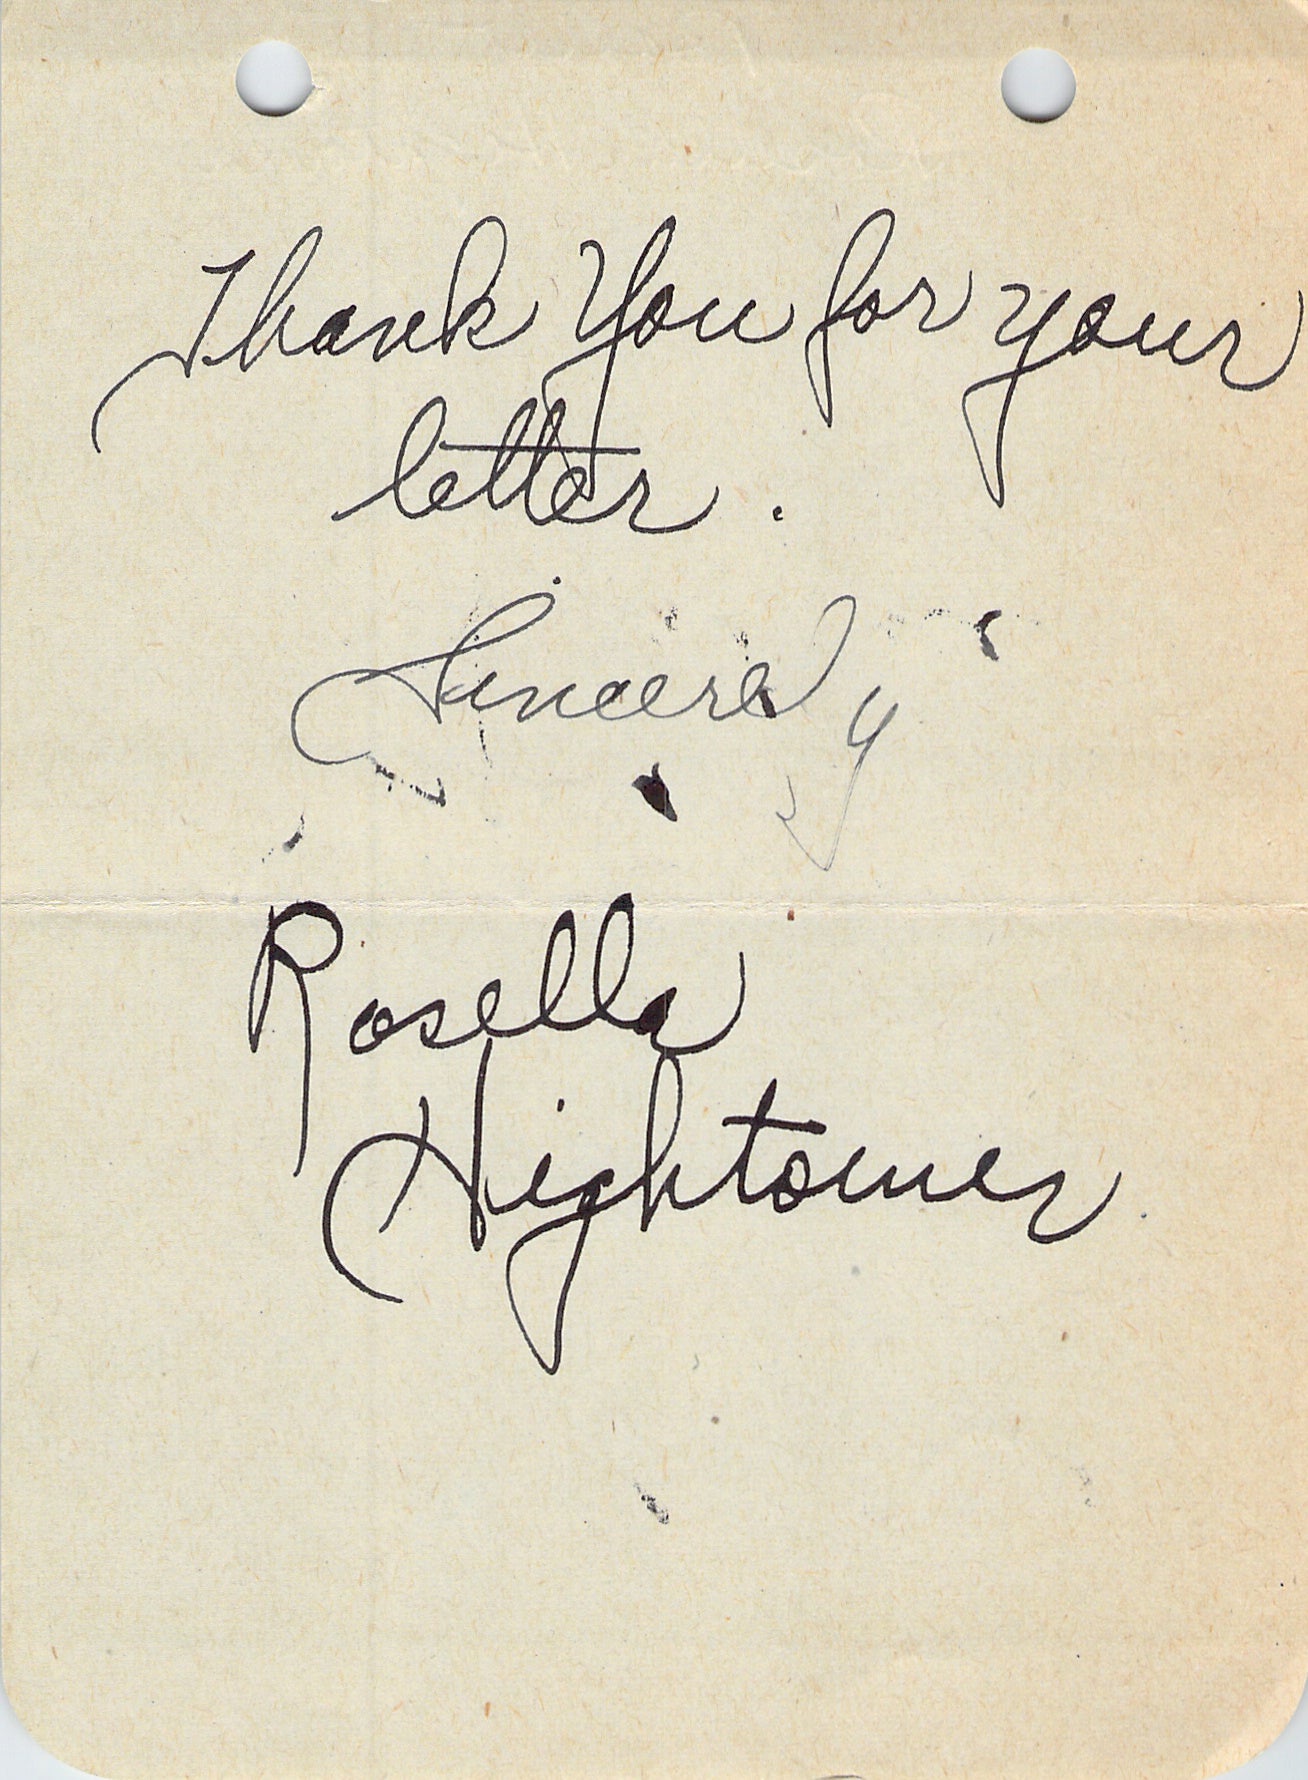 Thank You for your
letter.
Sincerely
Rosella
Hightower